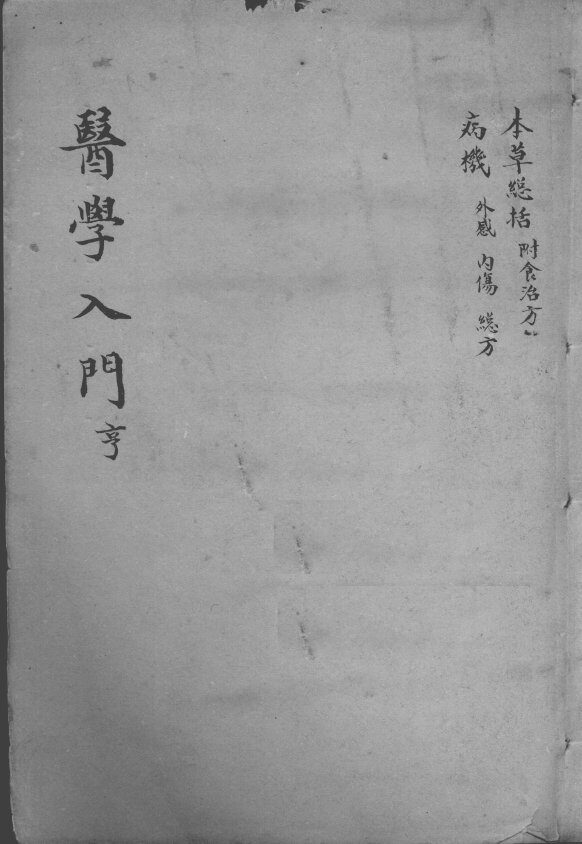 本草緫括 附食治方
病機 外感 內傷 緫方
醫學入門 亨